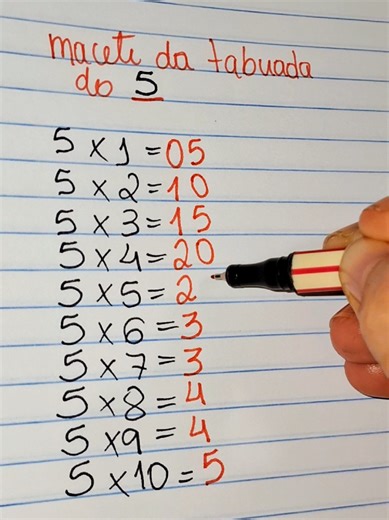 macete da tabuada
do 5
5 x 1 = 05
5 x 2 = 10
5 x 3 = 15
5 x 4 = 20
5 x 5 = 2
5 x 6 = 3
5 x 7 = 3
5 x 8 = 4
5 x 9 = 4
5 x 10 = 5